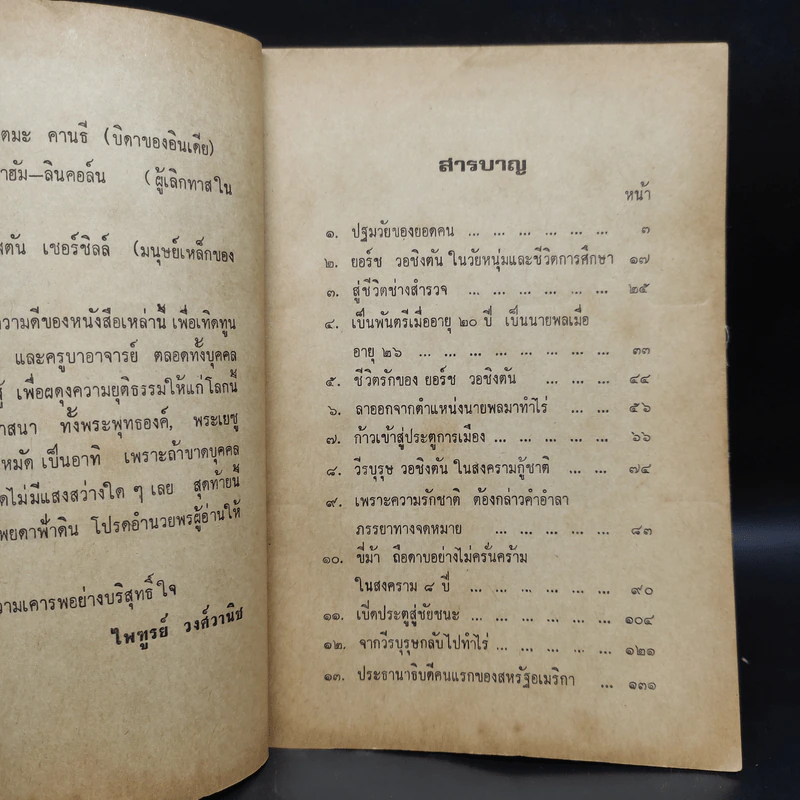 ตมะ คานธี (บิดาของอินเดีย)
าฮัม—ลินคอล์น (ผู้เลิกทาสใน
สตัน เชอร์ชิลล์ (มนุษย์เหล็กของ
วามดีของหนังสือเหล่านี้ เพื่อเทิดทูน
และครูบาอาจารย์ ตลอดทั้งบุคคล
สู้ เพื่อผดุงความยุติธรรมให้แก่โลกนี้
าสนา ทั้งพระพุทธองค์, พระเยซู
หมัด เป็นอาทิ เพราะถ้าขาดบุคคล
ดไม่มีแสงสว่างใด ๆ เลย สุดท้ายนี้
เทพยดาฟ้าดิน โปรดอำนวยพรผู้อ่านให้
วามเคารพอย่างบริสุทธิ์ใจ
ไพฑูรย์ วงศ์วานิช
สารบาญ
หน้า
๑. ปฐมวัยของยอดคน ... ... ... ... ... ... ๓
๒. ยอร์ช วอชิงตัน ในวัยหนุ่มและชีวิตการศึกษา ๑๗
๓. สู่ชีวิตช่างสำรวจ ... ... ... ... ... ... ๒๕
๔. เป็นพันตรีเมื่ออายุ ๒๐ ปี เป็นนายพลเมื่อ
อายุ ๒๖ ... ... ... ... ... ... ... ... ๓๓
๕. ชีวิตรักของ ยอร์ช วอชิงตัน ... ... ... ๔๔
๖. ลาออกจากตำแหน่งนายพลมาทำไร่ ... ... ๕๖
๗. ก้าวเข้าสู่ประตูการเมือง ... ... ... ... ... ๖๖
๘. วีรบุรุษ วอชิงตัน ในสงครามกู้ชาติ ... ... ๗๔
๙. เพราะความรักชาติ ต้องกล่าวคำอำลา
ภรรยาทางจดหมาย ... ... ... ... ... ๘๓
๑๐. ขี่ม้า ถือดาบอย่างไม่ครั่นคร้าม
ในสงคราม ๘ ปี ... ... ... ... ... ... ๙๐
๑๑. เปิดประตูสู่ชัยชนะ ... ... ... ... ... ... ๑๐๔
๑๒. จากวีรบุรุษกลับไปทำไร่ ... ... ... ... ... ๑๒๑
๑๓. ประธานาธิบดีคนแรกของสหรัฐอเมริกา ... ๑๓๑